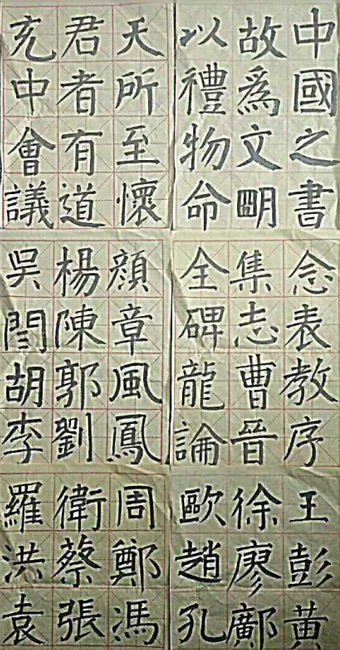 中國之書
故爲文朙
以禮物命
天所至懷
君者有道
充中會議
念表教序
集志曹晉
全碑龍論
顏章風鳳
楊陳郭劉
吳閆胡李
王彭黃
徐廖鄺
歐趙孔
周鄭馮
衛蔡張
羅洪袁